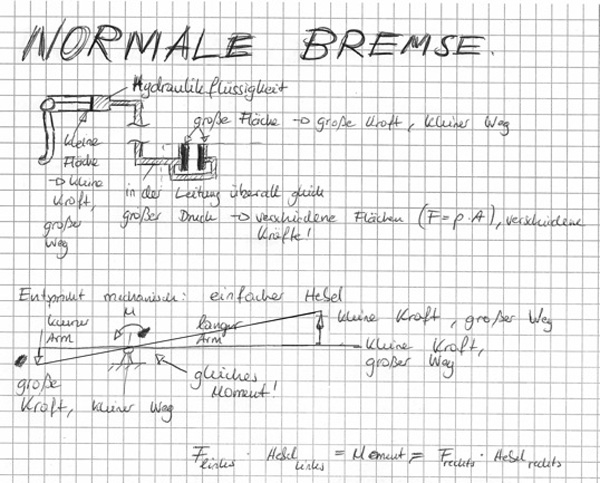 NORMALE BREMSE.
Hydraulikflüssigkeit
große Fläche → große Kraft, kleiner Weg
kleine
Fläche
→ kleine
Kraft,
großer
Weg
in der Leitung überall gleich
großer Druck → verschiedene Flächen (F=p·A), verschiedene
Kräfte!
Entspricht mechanisch: einfacher Hebel
M
kurzer
Arm
langer
Arm
kleine Kraft, großer Weg
kleine Kraft,
großer Weg
gleiches
Moment!
große
Kraft, kleiner Weg
F links · Hebel links = Moment = F rechts · Hebel rechts